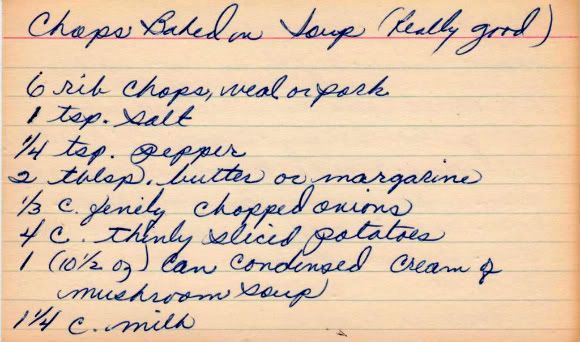 Chops Baked in Soup (Really good)
6 rib chops, veal or pork
1 tsp. salt
1/4 tsp. pepper
2 tblsp. butter or margarine
1/3 c. finely chopped onions
4 c. thinly sliced potatoes
1 (10 1/2 oz) can condensed cream of
mushroom soup
1 1/4 c. milk